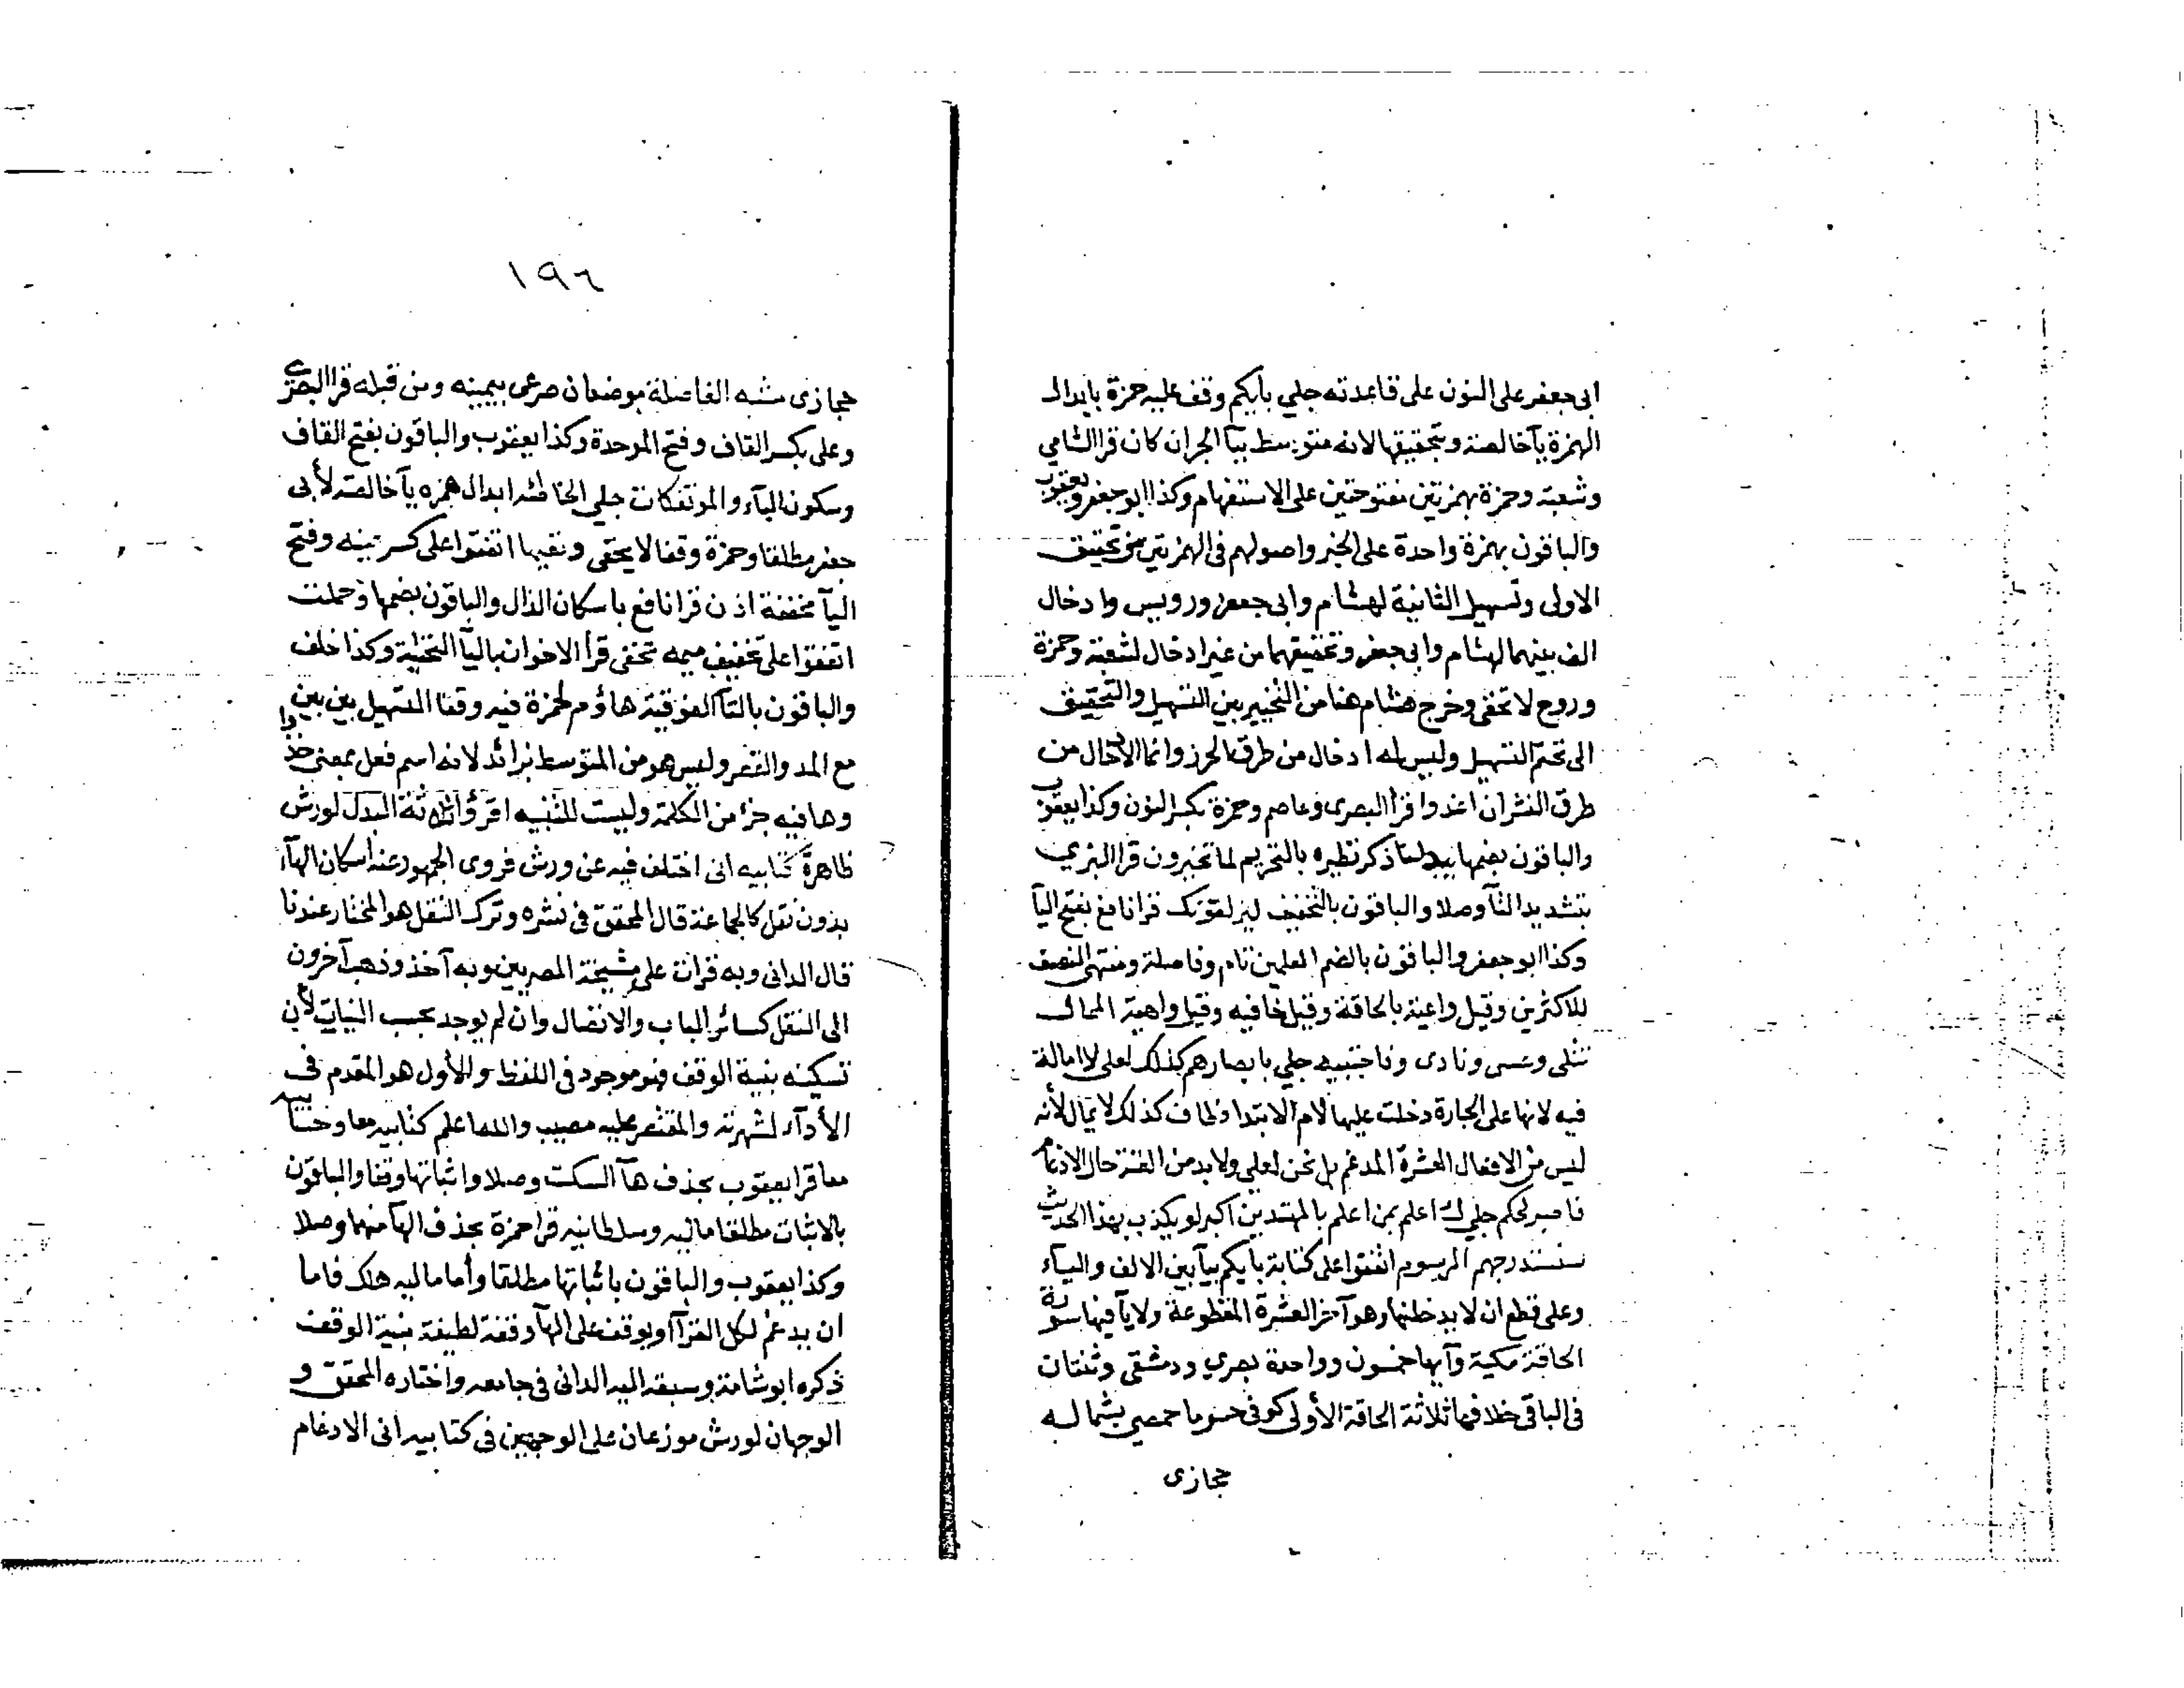 ابى جعفر على النون على قاعدته جلي بأيكم وقف عليه حمزة بابدال
الهمزة يآ خالصة وبتحقيقها لانه متوسط بيآ الجر ان كان قرا الشامي
وشعبة وحمزة بهمزتين مفتوحتين على الاستفهام وكذا ابو جعفر ويعقوب
والباقون بهمزة واحدة على الخبر واصولهم فى الهمزتين من تحقيق
الاولى وتسهيل الثانية لهشام وابى جعفر ورويس وادخال
الف بينهما لهشام وابى جعفر وتحقيقهما من غير ادخال لشعبة وحمزة
وروح لا تخفى وخرج هشام هنا من التخيير بين التسهيل والتحقيق
الى تحتم التسهيل وليس له ادخال من طرق الحرز وانما الادخال من
طرق النشر ان اغدوا قرأ البصرى وعاصم وحمزة بكسر النون وكذا يعقوب
والباقون بضمها يبدلنا ذكر نظيره بالتحريم لما تخيرون قرا البزي
بتشديد التآ وصلا والباقون بالتخفيف ليزلقونك قرا نافع بفتح اليآ
وكذا ابو جعفر والباقون بالضم العلمين تام وفاصلة ومنتهى النصف
للاكثرين وقيل واعية بالحاقة وقيل خافيه وقيل واهية الممال
تتلى وعسى ونادى وفاجتبيه جلي بابصارهم كذلك لعلى لا امالة
فيه لانها على الجارة دخلت عليها لام الابتدا وطاف كذلك لا يمال لأنه
ليس من الافعال العشرة المدغم بل نحن لعلى ولا بد من الغنة حال الادغام
فاصبر لحكم جلي ك اعلم بمن اعلم بالمهتدين اكبر لو يكذب بهذا الحديث
سنستدرجهم المرسوم اتفقوا على كتابة بأيكم بيآ بين الالف واليآء
وعلى قطع ان لا يدخلنها وهو آخر العشرة المقطوعة ولا يآ فيها سورة
الحاقة مكية وآيها خمسون وواحدة بصري ودمشقى وثنتان
فى الباقى خلافها ثلاثة الحاقة الأولى كوفى حسوما حمصي بشماله
حجازى
١٩٦
حجازى مشبه الفاصلة موضعان صرعى بيمينه ومن قبله قرا البصرى
وعلى بكسر القاف وفتح الموحدة وكذا يعقوب والباقون بفتح القاف
وسكون البآء والموتفكات جلي الخاطئه ابدال همزه يآ خالصة لأبى
جعفر مطلقا وحمزة وقفا لا يخفى وتعيها اتفقوا على كسر عينه وفتح
اليآ مخففة اذن قرا نافع باسكان الذال والباقون بضمها وحملت
اتفقوا على تخفيف ميمه تخفى قرأ الاخوان باليآ التحتية وكذا خلف
والباقون بالتآ الفوقية هاؤم لحمزة فيه وقفا التسهيل بين بين
مع المد والقصر وليس هو من المتوسط بزائد لانه اسم فعل بمعنى خذوا
وها فيه جزء من الكلمة وليست للتنبيه اقرؤا ثلاثة البدل لورش
ظاهرة كتابيه انى اختلف فيه عن ورش فروى الجمهور عنه اسكان الهآء
بدون نقل كالجماعة قال المحقق فى نشره وترك النقل هو المختار عندنا
قال الدانى وبه قرات على مشيخة المصريين وبه آخذ وذهب آخرون
الى النقل كسائر الباب والانفصال وان لم يوجد بحسب النيات لأن
تسكينه بنية الوقف فهو موجود فى اللفظ والأول هو المقدم فى
الأدآء لشهرته والمقتصر عليه مصيب والله اعلم كتابيه معا وحسابيه
معا قرا يعقوب بحذف هآ السكت وصلا واثباتها وقفا والباقون
بالاثبات مطلقا ماليه وسلطانيه قرا حمزة بحذف الهآ منهما وصلا
وكذا يعقوب والباقون باثباتها مطلقا وأما ماليه هلك فاما
ان يدغم لكل القرآء او يوقف على الهآ وقفة لطيفة بنية الوقف
ذكره ابو شامة وسبقه اليه الدانى فى جامعه واختاره المحقق و
الوجهان لورش موزعان على الوجهين فى كتابيه انى الادغام